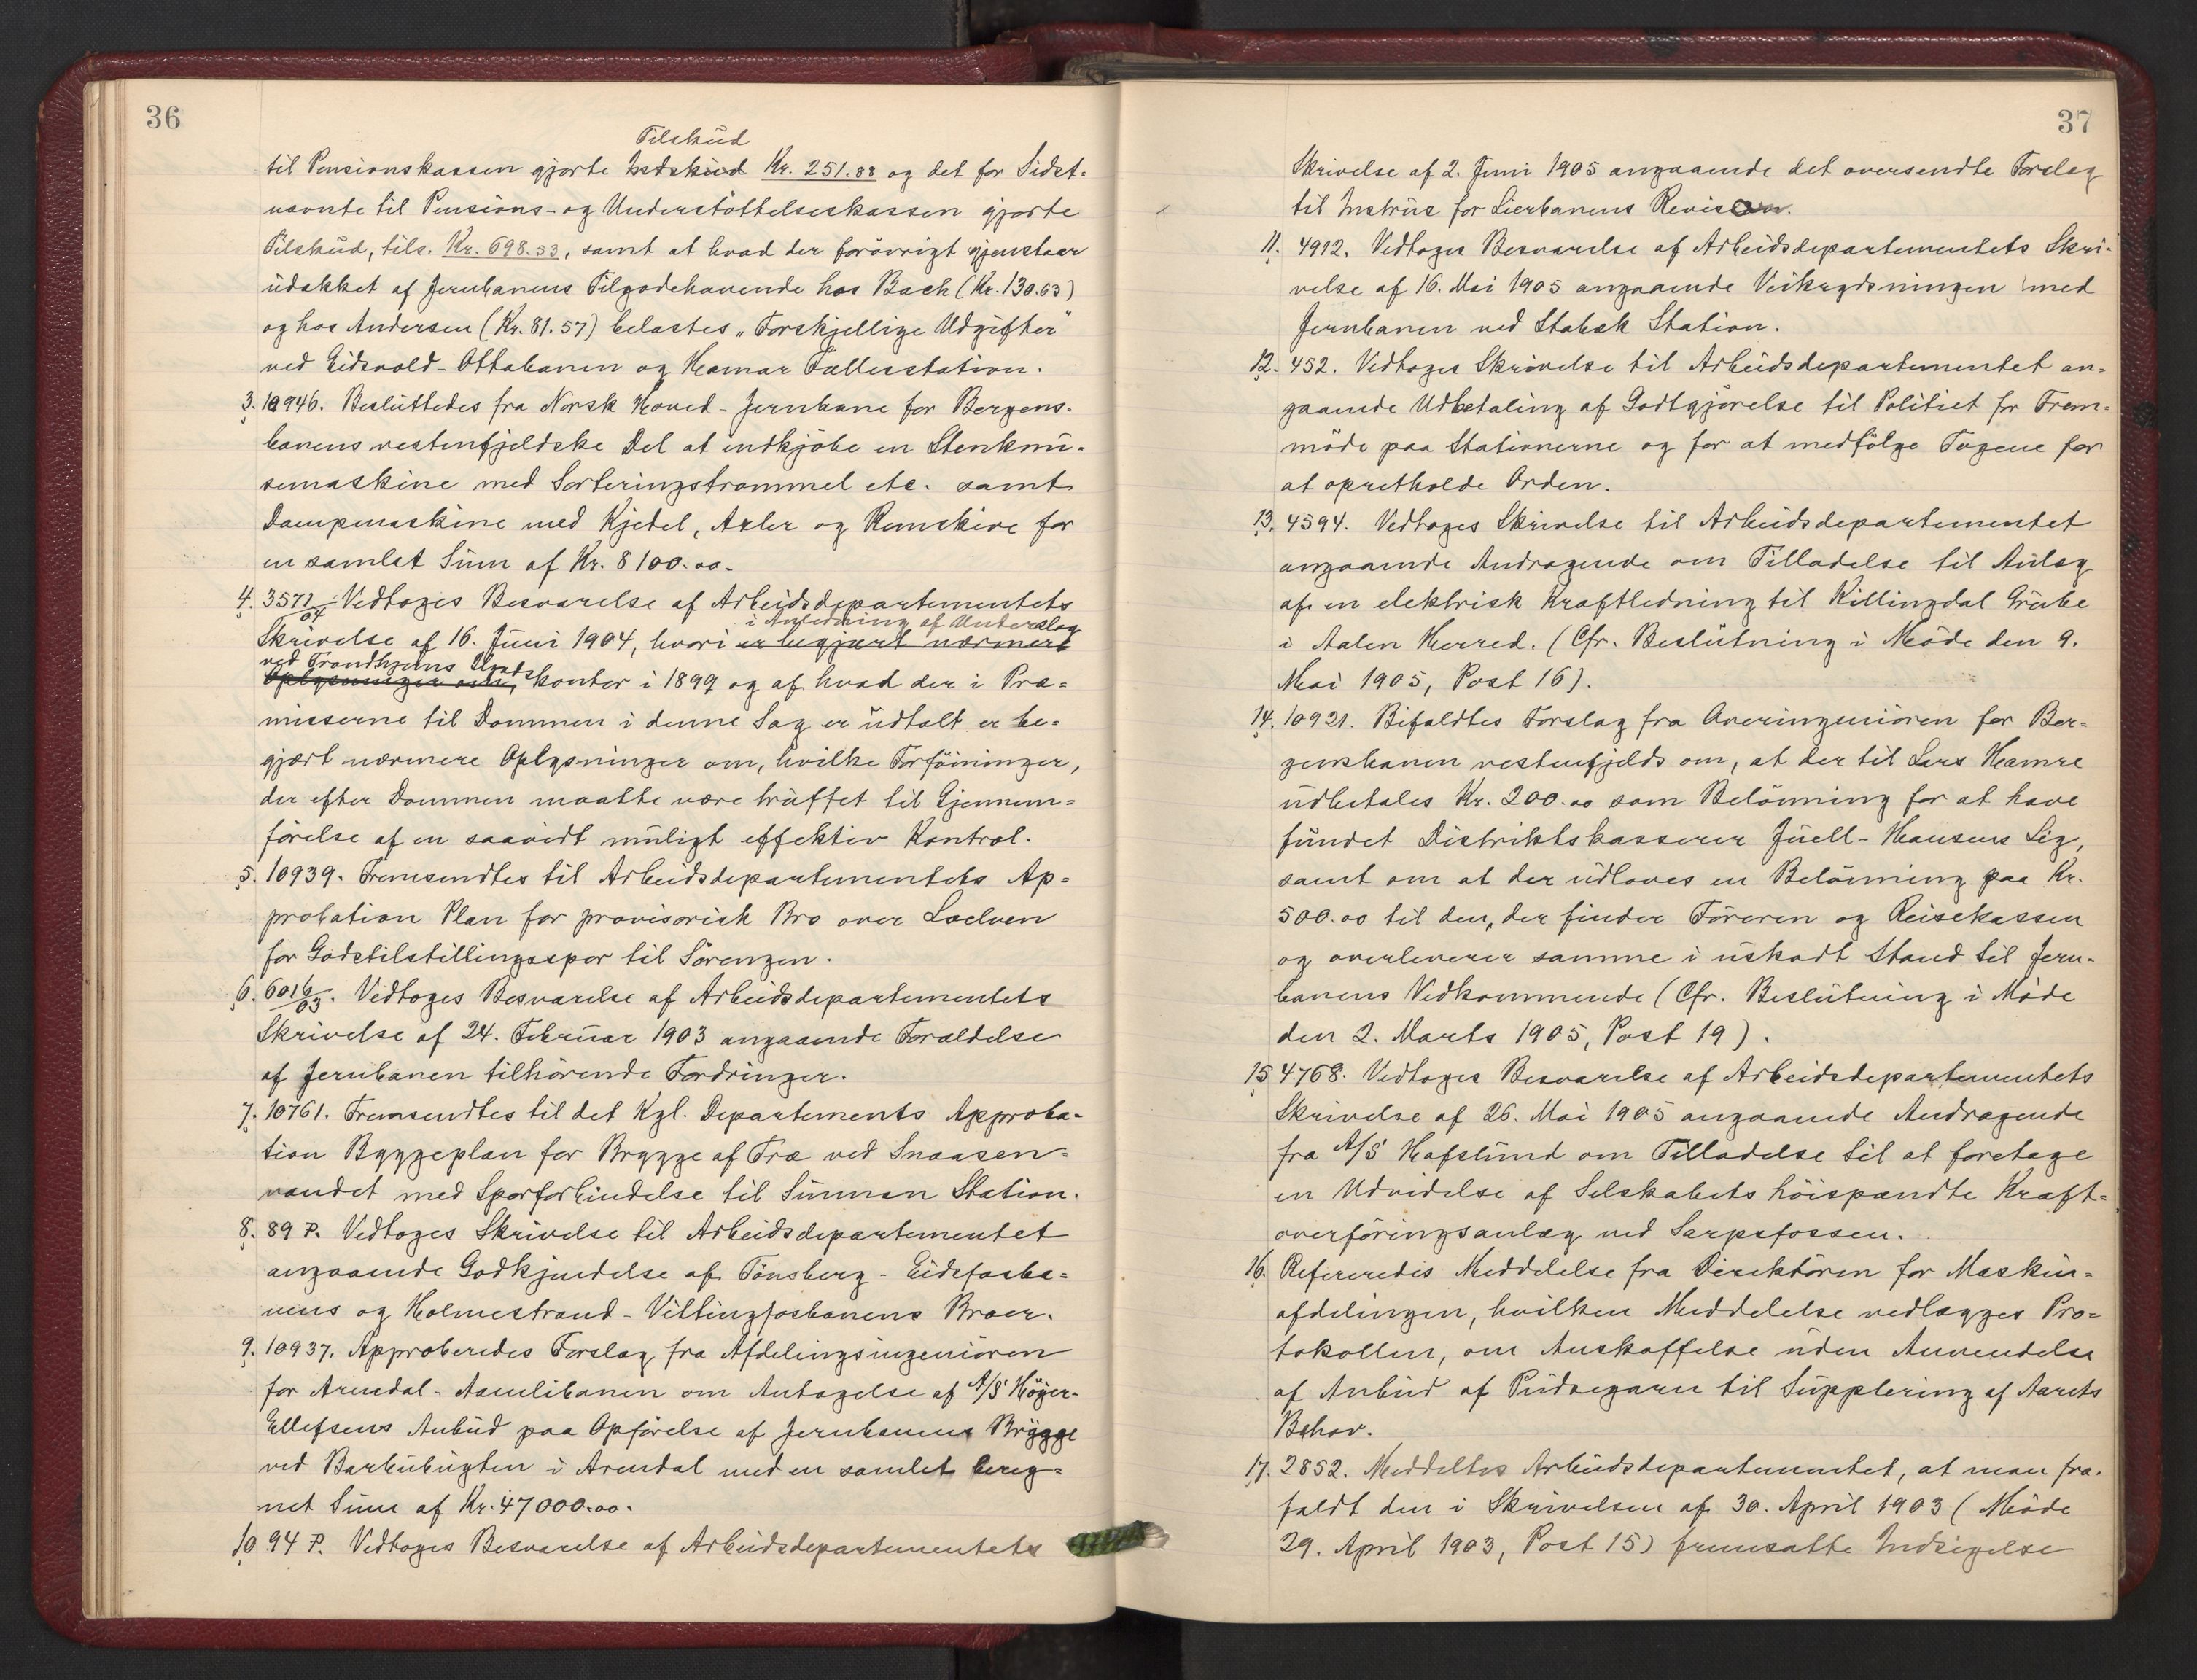 36
Tilskud
til Pensionskassen gjorte Indskud Kr. 251.88 og det for Sidst-
nævnte til Pensions- og Understöttelseskassen gjorte
Tilskud, tils. Kr. 698.53, samt at hvad der forövrigt gjenstaar
udækket af Jernbanens Tilgodehavende hos Bach (Kr. 130.63)
og hos Andersen (Kr. 81.57) belastes „Forskjellige Udgifter"
ved Eidsvold-Ottabanen og Hamar Fællesstation.
3. 10946. Besluttedes fra Norsk Hoved-Jernbane for Bergens-
banens vestenfjeldske Del at indkjöbe en Stenknu-
semaskine med Sorteringstrommel etc. samt
Dampmaskine med Kjedel, Axler og Remskive for
en samlet Sum af Kr. 8100.00.
4. 3571/04 Vedtoges Besvarelse af Arbeidsdepartementets
i Anledning af Underslag
Skrivelse af 16. Juni 1904, hvori er begjært nærmere
ved Trondhjems Distrikts
Oplysninger om, kontor i 1899 og af hvad der i Præ-
misserne til Dommen i denne Sag er udtalt er be-
gjært nærmere Oplysninger om, hvilke Forföininger,
der efter Dommen maatte være truffet til Gjennem-
förelse af en saavidt muligt effektiv Kontrol.
5. 10939. Fremsendtes til Arbeidsdepartementets Ap-
probation Plan for provisorisk Bro over Loelven
for Godstilstillingsspor til Sörengen.
6. 6016/03. Vedtoges Besvarelse af Arbeidsdepartementets
Skrivelse af 24. Februar 1903 angaaende Forældelse
af Jernbanen tilhörende Fordringer.
7. 10761. Fremsendtes til det Kgl. Departements Approba-
tion Byggeplan for Brygge af Træ ved Snaasen-
vandet med Sporforbindelse til Sunnan Station.
8. 89 P. Vedtoges Skrivelse til Arbeidsdepartementet
angaaende Godkjendelse af Tönsberg-Eidsfosba-
nens og Holmestrand-Vittingfosbanens Broer.
9. 10937. Approberedes Forslag fra Afdelingsingeniören
for Arendal-Aamlibanen om Antagelse af A/S Höyer-
Ellefsens Anbud paa Opförelse af Jernbanens Brygge
ved Barbubugten i Arendal med en samlet bereg-
net Sum af Kr. 47000.00.
10 94 P. Vedtoges Besvarelse af Arbeidsdepartementets
37
Skrivelse af 2. Juni 1905 angaaende det oversendte Forslag
til Instrus for Lierbanens Revision.
11. 4912. Vedtoges Besvarelse af Arbeidsdepartementets Skri-
velse af 16. Mai 1905 angaaende Veikrydsningen med
Jernbanen ved Stabæk Station.
12. 452. Vedtoges Skrivelse til Arbeidsdepartementet an-
gaaende Udbetaling af Godtgjörelse til Politiet for Frem-
möde paa Stationerne og for at medfölge Togene for
at opretholde Orden.
13. 4594. Vedtoges Skrivelse til Arbeidsdepartementet
angaaende Andragende om Tilladelse til Anlæg
af en elektrisk Kraftledning til Killingdal Grube
i Aalen Herred. (Cfr. Beslutning i Möde den 9.
Mai 1905, Post 16).
14. 10921. Bifaldtes Forslag fra Overingeniören for Ber-
gensbanen vestenfjelds om, at der til Lars Hamre
udbetales Kr. 200.00 som Belönning for at have
fundet Distriktskasserer Juell-Hansens Lig,
samt om at der udloves en Belönning paa Kr.
500.00 til den, der finder Föreren og Reisekassen
og overleverer samme i uskadt Stand til Jern-
banens Vedkommende (Cfr. Beslutning i Möde
den 2. Marts 1905, Post 19).
15 4768. Vedtoges Besvarelse af Arbeidsdepartementets
Skrivelse af 26. Mai 1905 angaaende Andragende
fra A/S Hafslund om Tilladelse til at foretage
en Udvidelse af Selskabets höispændte Kraft-
overföringsanlæg ved Sarpsfossen.
16. Refereredes Meddelelse fra Direktören for Maskin-
afdelingen, hvilken Meddelelse vedlægges Pro-
tokollen, om Anskaffelse uden Anvendelse
af Anbud af Pudsegarn til Supplering af Aarets
Behov.
17. 2852. Meddeltes Arbeidsdepartementet, at man fra-
faldt den i Skrivelsen af 30. April 1903 (Möde
29. April 1903, Post 15) fremsatte Indsigelse